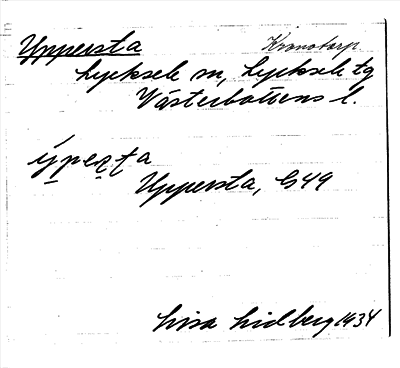 Uppersta Kronotorp
Lycksele sn, Lycksele tg
Västerbottens l.
ýpeṣṭa
Uppersta, G49
Lisa Lidberg 1934